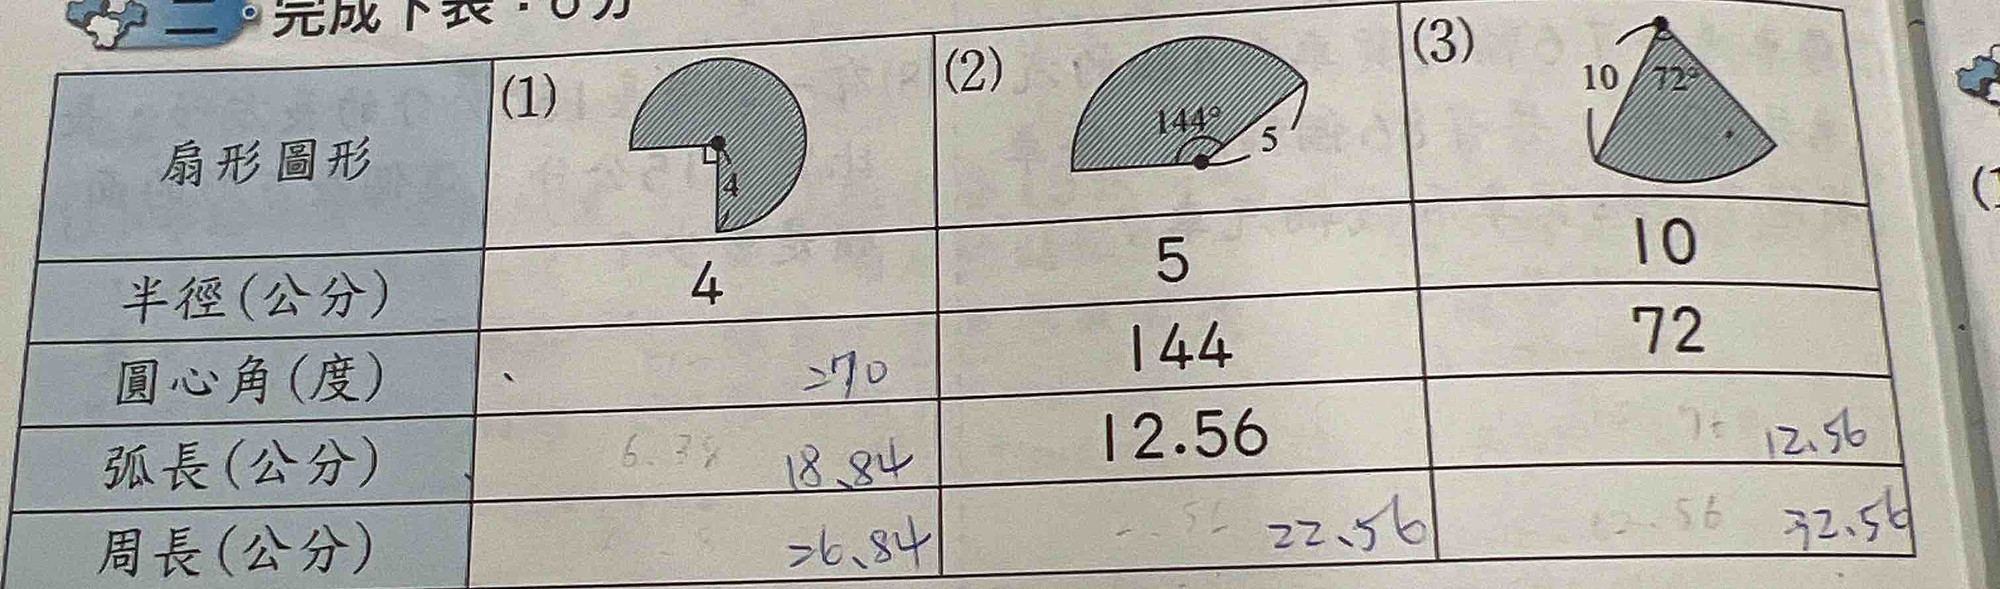 二 完成下表：6分
扇形圖形 (1) 4 (2) 144° 5 (3) 10 72°
半徑(公分) 4 5 10
圓心角(度) 270 144 72
弧長(公分) 18.84 12.56 12.56
周長(公分) 26.84 22.56 32.56
(1